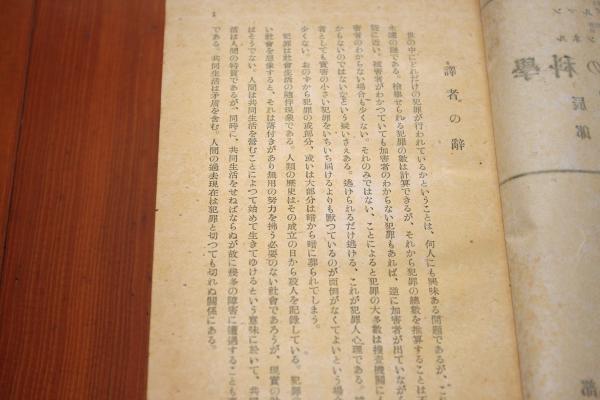 譯者の辭
世の中にどれだけの犯罪が行われているかということは、何人にも興味ある問題であるが、こ
永遠の謎である。檢擧せられる犯罪の數は計算できるが、それから犯罪の總數を推算することは不
能に近い。被害者がわかつていても加害者のわからない犯罪もあれば、逆に加害者が出ていながら
害者のわからない場合も少くない。それのみではない、ことによると犯罪の大多數は搜査機關にも
からないのではないかという疑いさえある。逃げられるだけ逃げる、これが犯罪人心理である。
者としても實害の小さい犯罪をいちいち屆けるよりも默つているのが面倒がなくてよいという場合
少くない。おの中から犯罪の或部分、或いは大部分は暗から暗に葬られてしまう。
犯罪は社會生活の隨伴現象である。人類の歷史はその成立の日から殺人を記錄している。犯罪
い社會を想像すると、それは落付きがあり無用の努力を拂う必要のない社會であろうが、現實の社
はそうでない。人間は共同生活を營むことによつて始めて生きてゆけるという意味に於いて、共同
活は人間の特質であるが、同時に、共同生活をせねばならぬが故に幾多の障害に遭遇することも
である。共同生活は矛盾を含む。人間の過去現在は犯罪と切つても切れぬ關係にある。
1
の科學